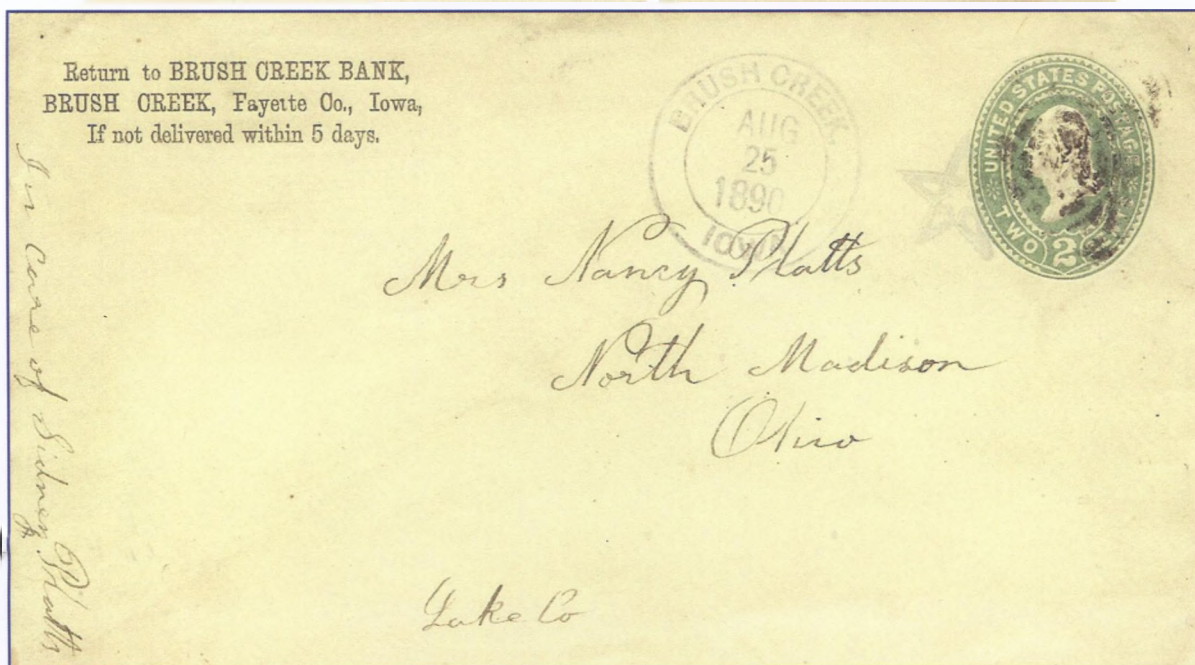 Return to BRUSH CREEK BANK,
BRUSH CREEK, Fayette Co., Iowa,
If not delivered within 5 days.
BRUSH CREEK,
AUG
25
1890
IOWA
UNITED STATES POSTAGE
TWO 2 CENTS
Mrs Nancy Platts
North Madison
Ohio
Lake Co
In care of Sidney Platts